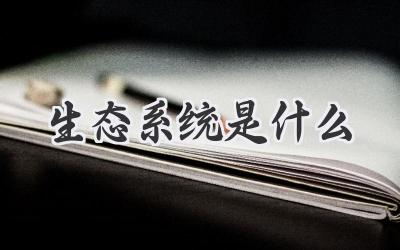 生态系统是什么